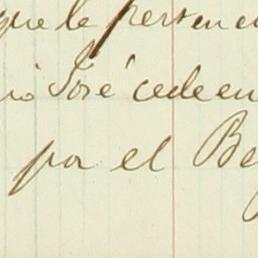 que le pertenec
José cede en
por el Be